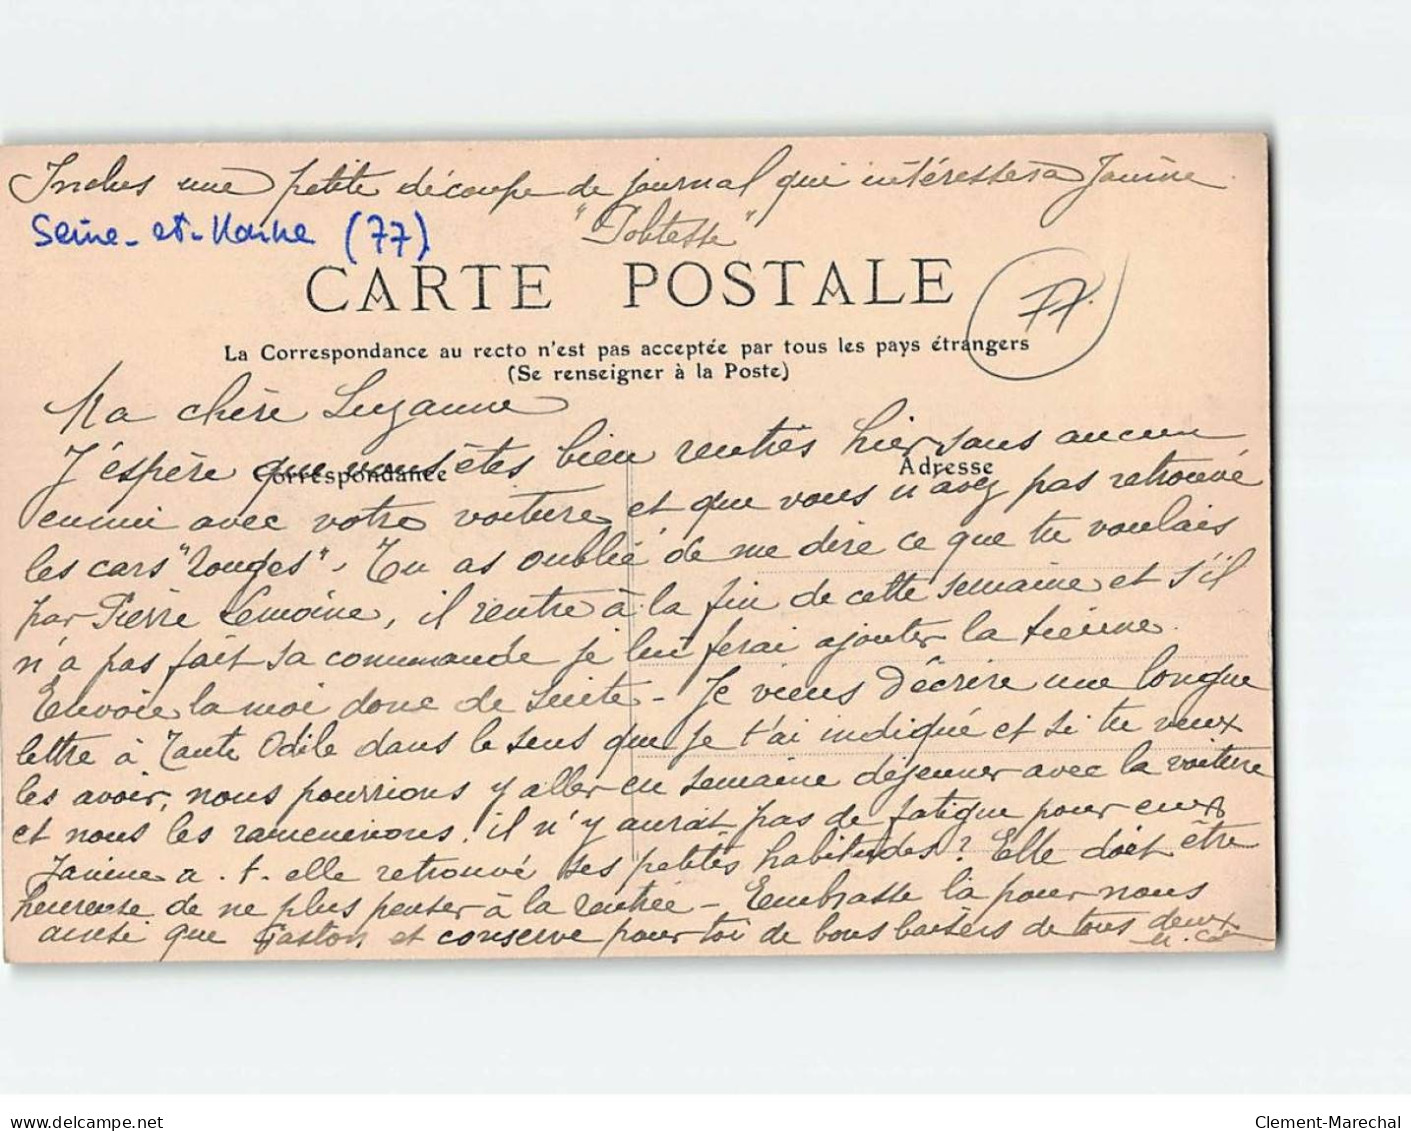 Inclus une petite découpe de journal qui intéressera Janine
"Politesse"
Seine-et-Marne (77)
CARTE POSTALE
77.
La Correspondance au recto n'est pas acceptée par tous les pays étrangers
(Se renseigner à la Poste)
Ma chère Suzanne
Correspondance
Adresse
J'éspère que vous êtes bien rentrés hier sans aucun
ennui avec votre voiture et que vous n'avez pas retrouvé
les cars "rouges". Tu as oublié de me dire ce que tu voulais
par Pierre Lemoine, il rentre à la fin de cette semaine et s'il
n'a pas fait sa commande je lui ferai ajouter la tienne.
Envoie la moi donc de suite - Je viens d'écrire une longue
lettre à Tante Odile dans le sens que je t'ai indiqué et si tu veux
les avoir, nous pourrions y aller en semaine déjeuner avec la voiture
et nous les ramenerions. il n'y aurait pas de fatigue pour eux
Janine a-t-elle retrouvé ses petites habitudes? Elle doit être
heureuse de ne plus penser à la rentrée - Embrasse la pour nous
ainsi que Gaston et conserve pour toi de bons baisers de tous deux
delcampe.net
Clement-Marechal